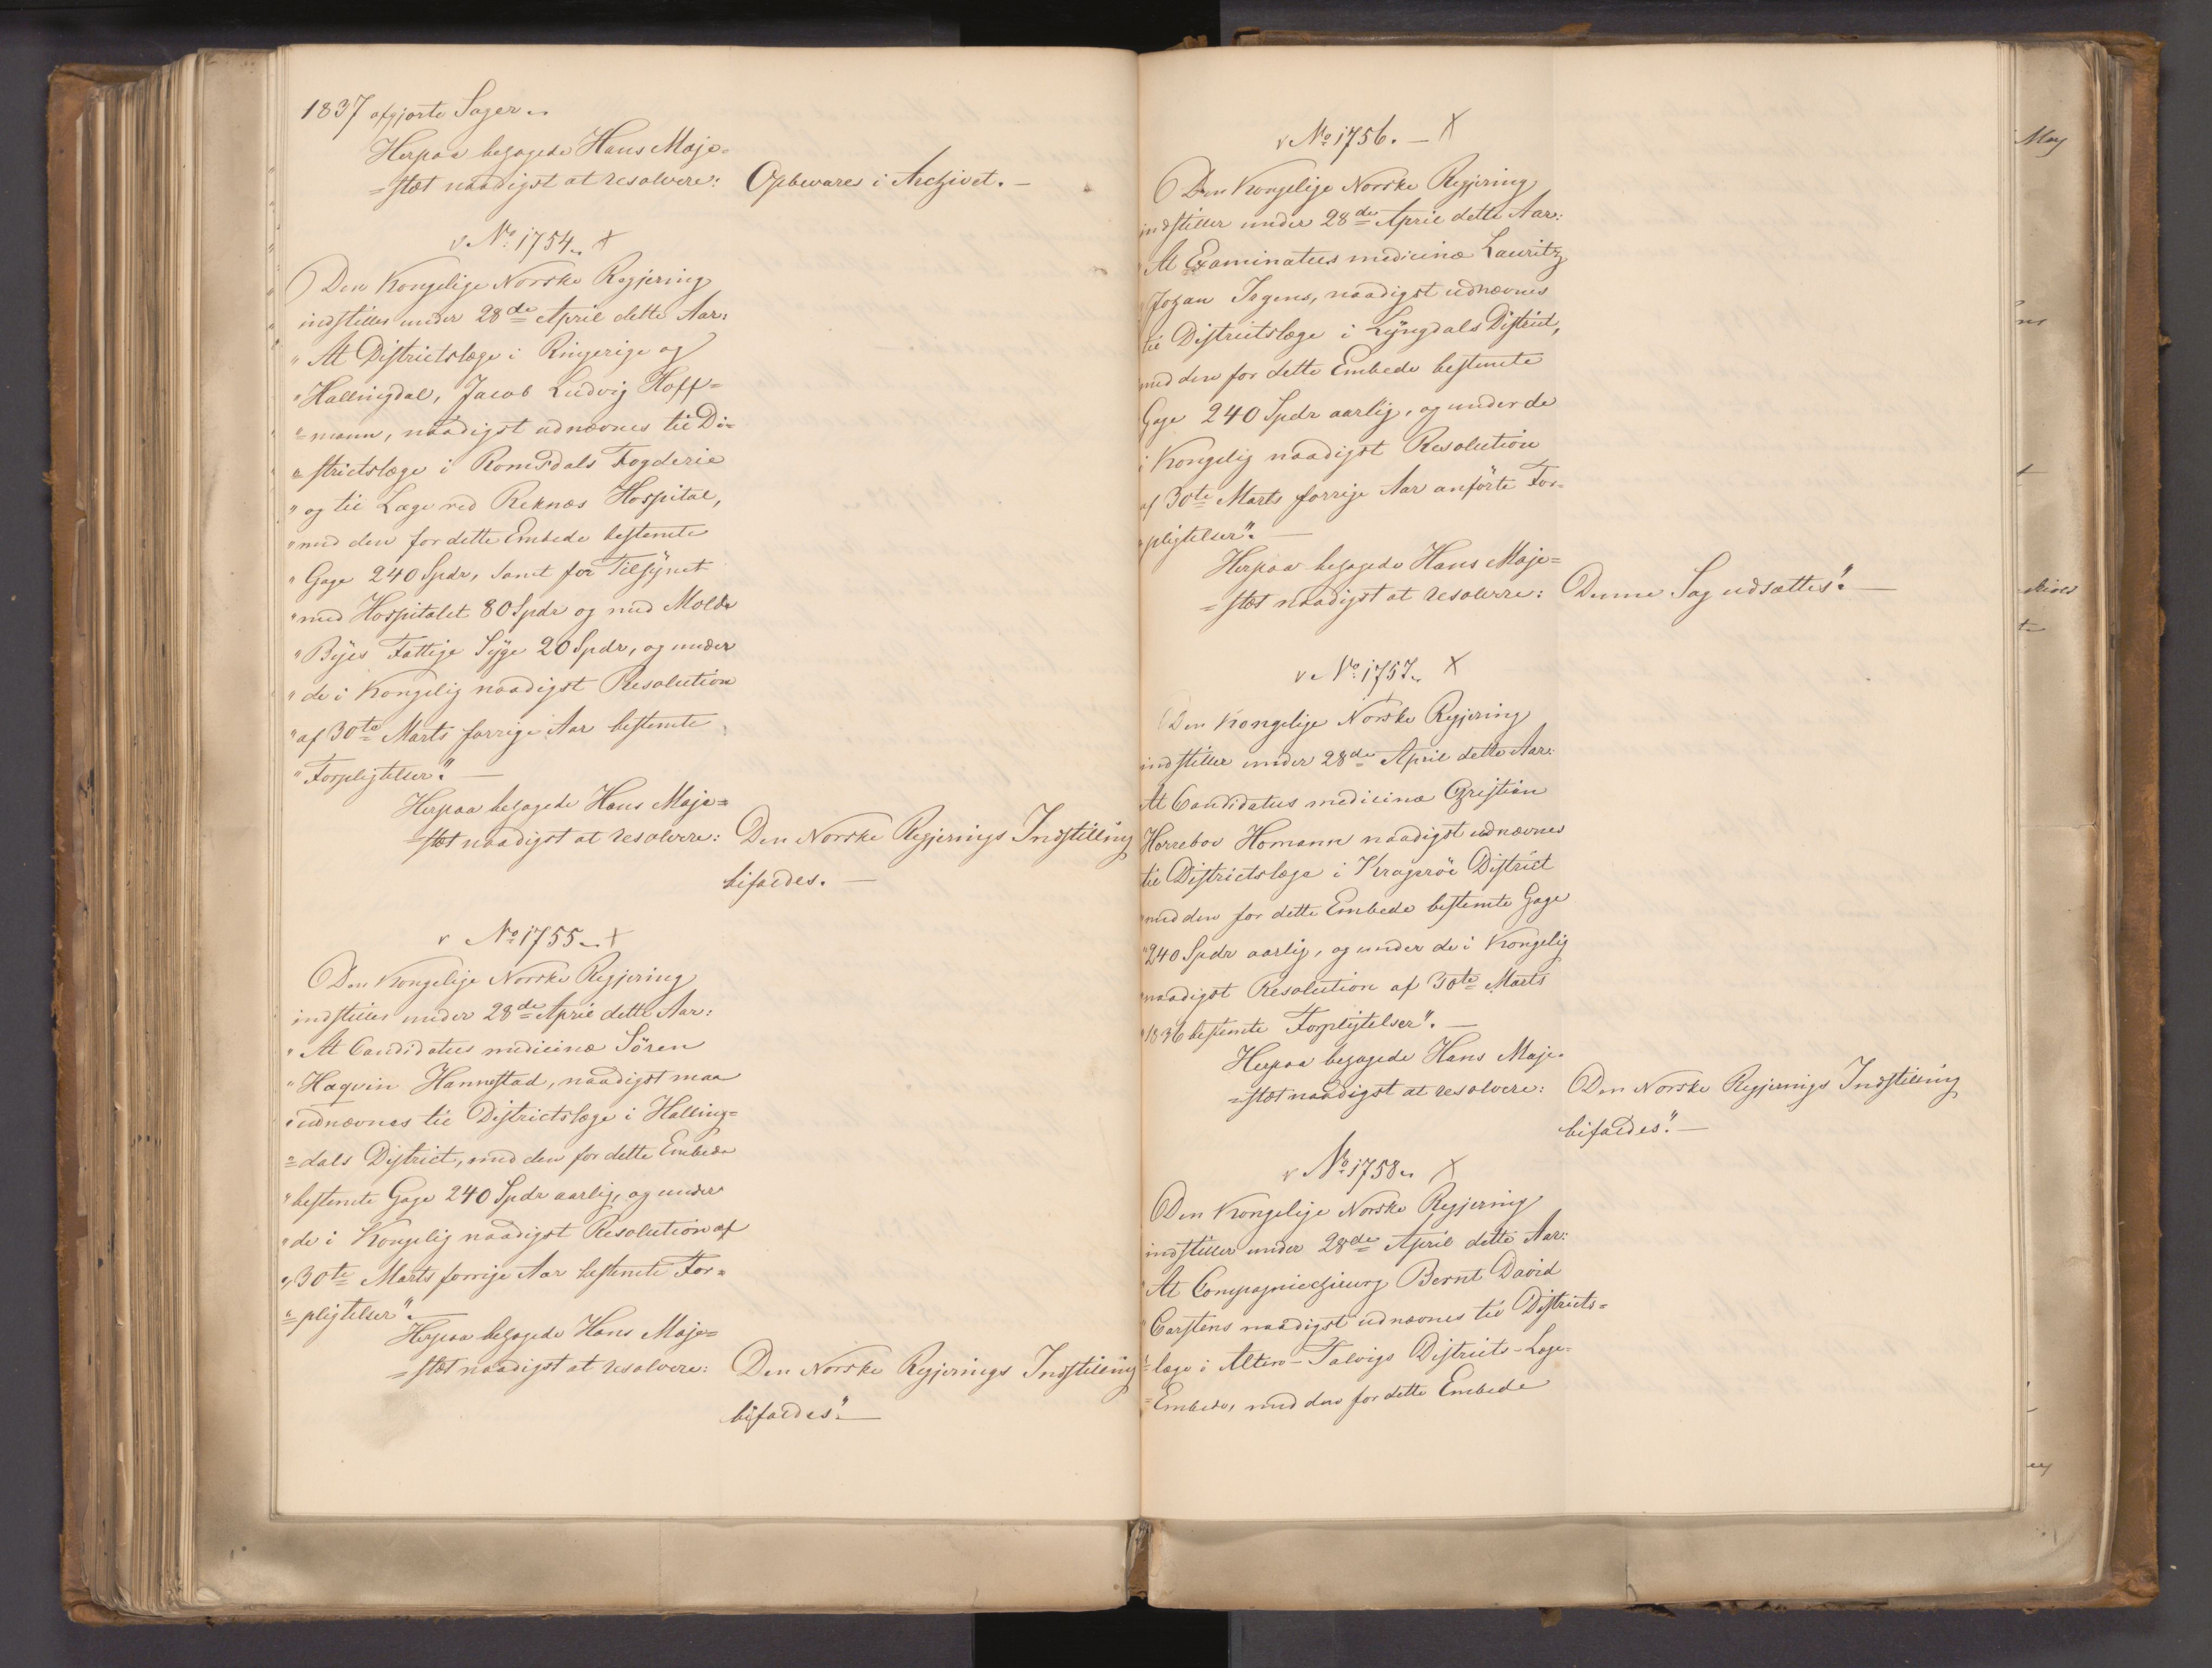 1837 afgjorte Sager.
Herpaa behagede Hans Maje=
=stæt naadigst at resolvere: Opbevares i Archivet. —
No. 1754. X
Den Kongelige Norske Regjering
indstiller under 28de April dette Aar:
"At Districtslæge i Ringerige og
"Hallingdal, Jacob Ludvig Hoff=
"=mann, naadigst udnævnes til Di=
"=strictslæge i Romsdals Fogderie
"og til Læge ved Reknæs Hospital,
"med den for dette Embede bestemte
"Gage 240 Spdr, samt for Tilsynet
"med Hospitalet 80 Spdr og med Molde
"Byes Fattige Syge 20 Spdr, og under
"de i Kongelig naadigst Resolution
"af 30te Marts forrige Aar bestemte
"Forpligtelser". —
Herpaa behagede Hans Maje=
=stæt naadigst at resolvere: Den Norske Regjerings Indstilling
bifaldes. —
No. 1755. X
Den Kongelige Norske Regjering
indstiller under 28de April dette Aar:
"At Candidatus medicinæ Sören
"Haqvin Hannestad, naadigst maa
"udnævnes til Districtslæge i Halling=
"=dals District, med den for dette Embede
"bestemte Gage 240 Spdr aarlig, og under
"de i Kongelig naadigst Resolution af
"30te Marts forrige Aar bestemte For=
"=pligtelser". —
Herpaa behagede Hans Maje=
=stæt naadigst at resolvere: Den Norske Regjerings Indstilling
bifaldes". —
No. 1756. — X
Den Kongelige Norske Regjering
indstiller under 28de April dette Aar:
"At Examinatus medicinæ Lauritz
"Johan Irgens, naadigst udnævnes
til Districtslæge i Lyngdals District,
med den for dette Embede bestemte
Gage 240 Spdr aarlig, og under de
i Kongelig naadigst Resolution
af 30te Marts forrige Aar anförte For=
"pligtelser". —
Herpaa behagede Hans Maje=
=stæt naadigst at resolvere: Denne Sag udsættes". —
No. 1757. X
Den Kongelige Norske Regjering
indstiller under 28de April dette Aar:
At Candidatus medicinæ Christian
Horrebow Homann naadigst udnævnes
til Districtslæge i Krageröe District
"med den for dette Embede bestemte Gage
"240 Spdr aarlig, og under de i Kongelig
"naadigst Resolution af 30te Marts
"1836 bestemte Forpligtelser". —
Herpaa behagede Hans Maje=
=stæt naadigst at resolvere: Den Norske Regjerings Indstilling
bifaldes". —
No. 1758. X
Den Kongelige Norske Regjering
indstiller under 28de April dette Aar:
"At Compagniechirurg Bernt David
"Carstens naadigst udnævnes til Districts=
"=læge i Alten-Talvigs Districts-Læge=
"=Embede, med den for dette Embede